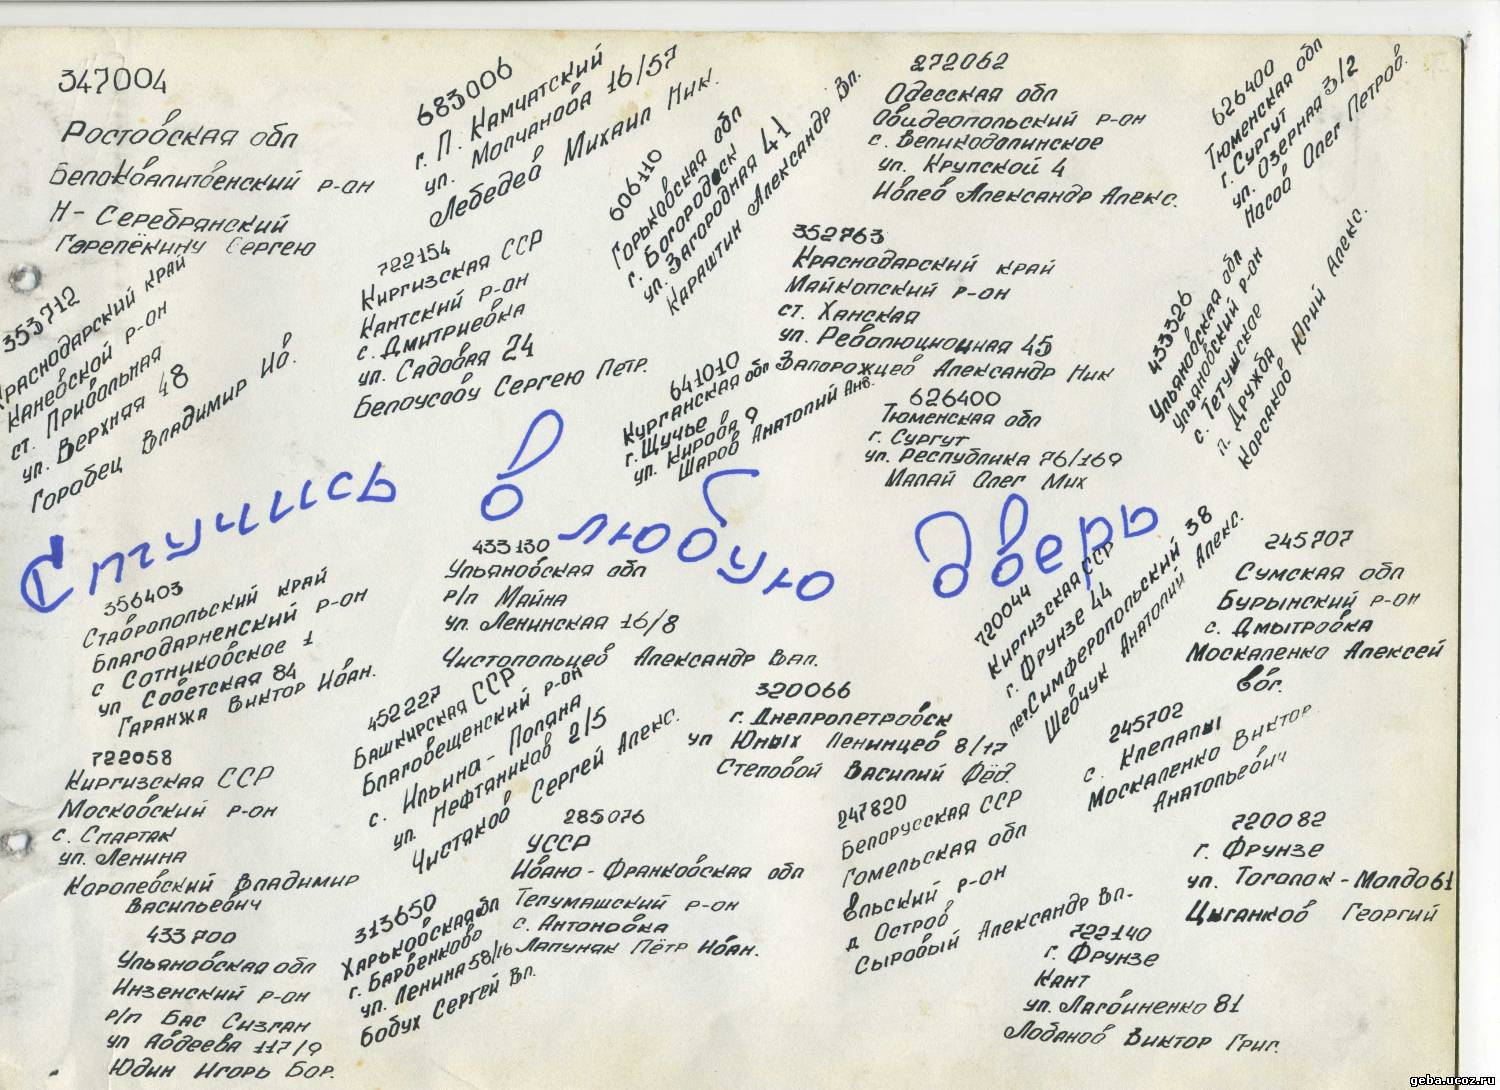 347004
Ростовская обл
Белокалитвенский р-он
Н-Серебрянский
Горепёкину Сергею
683006
г. П. Камчатский
ул. Молчанова 16/57
Лебедев Михаил Ник.
606110
Горьковская обл
г. Богородск
ул. Загородная 41
Караштин Александр Вл.
272062
Одесская обл
Овидеопольский р-он
с. Великодолинское
ул. Крупской 4
Ивлев Александр Алекс.
626400
Тюменская обл
г. Сургут
ул. Озерная 3/2
Насов Олег Петров.
353712
Краснодарский край
Каневской р-он
ст. Привольная
ул. Верхняя 48
Горобец Владимир Ив.
722154
Киргизская ССР
Кантский р-он
с. Дмитриевка
ул. Садовая 24
Белоусову Сергею Петр.
641010
Курганская обл
г. Щучье
ул. Кирова 9
Шаров Анатолий Анв.
352763
Краснодарский край
Майкопский р-он
ст. Ханская
ул. Революционная 45
Запорожцев Александр Ник
626400
Тюменская обл
г. Сургут
ул. Республика 76/169
Малай Олег Мих
433326
Ульяновская обл
Ульяновский р-он
с. Тетушское
п. Дружба
Корсаков Юрий Алекс.
Стучись в любую дверь
356403
Ставропольский край
Благодарненский р-он
с Сотниковское 1
ул Советская 84
Гаранжа Виктор Иван.
433130
Ульяновская обл
Р/п Майна
ул. Ленинская 16/8
Чистопольцев Александр Вал.
720044
Киргизская ССР
г. Фрунзе 44
пер. Симферопольский 38
Шевчук Анатолий Алекс.
245707
Сумская обл
Бурынский р-он
с. Дмытровка
Москаленко Алексей
Вог.
722058
Киргизская ССР
Московский р-он
с. Спартак
ул. Ленина
Королевский Владимир
Васильевич
452227
Башкирская ССР
Благовещенский р-он
с. Ильина-Поляна
ул. Нефтяников 2/5
Чистяков Сергей Алекс.
320066
г. Днепропетровск
ул Юных Ленинцев 8/17
Степовой Василий Фёд.
245702
с. Клепалы
Москаленко Виктор
Анатольевич
433700
Ульяновская обл
Инзенский р-он
р/п Бас Сизган
ул Авдеева 117/9
Юдин Игорь Бор.
313650
Харьковская обл
г. Барвенково
ул. Ленина 58/16
Бобух Сергей Вл.
285076
УССР
Ивано-Франковская обл
Тепумашский р-он
с. Антоновка
Лапуняк Пётр Иван.
247820
Белорусская ССР
Гомельская обл
Ельский р-он
д Остров
Сыровый Александр Вл.
720082
г. Фрунзе
ул. Тоголок-Молдо 61
Цыганков Георгий
722140
г. Фрунзе
Кант
ул. Логвиненко 81
Лобанов Виктор Григ.
geba.ucoz.ru